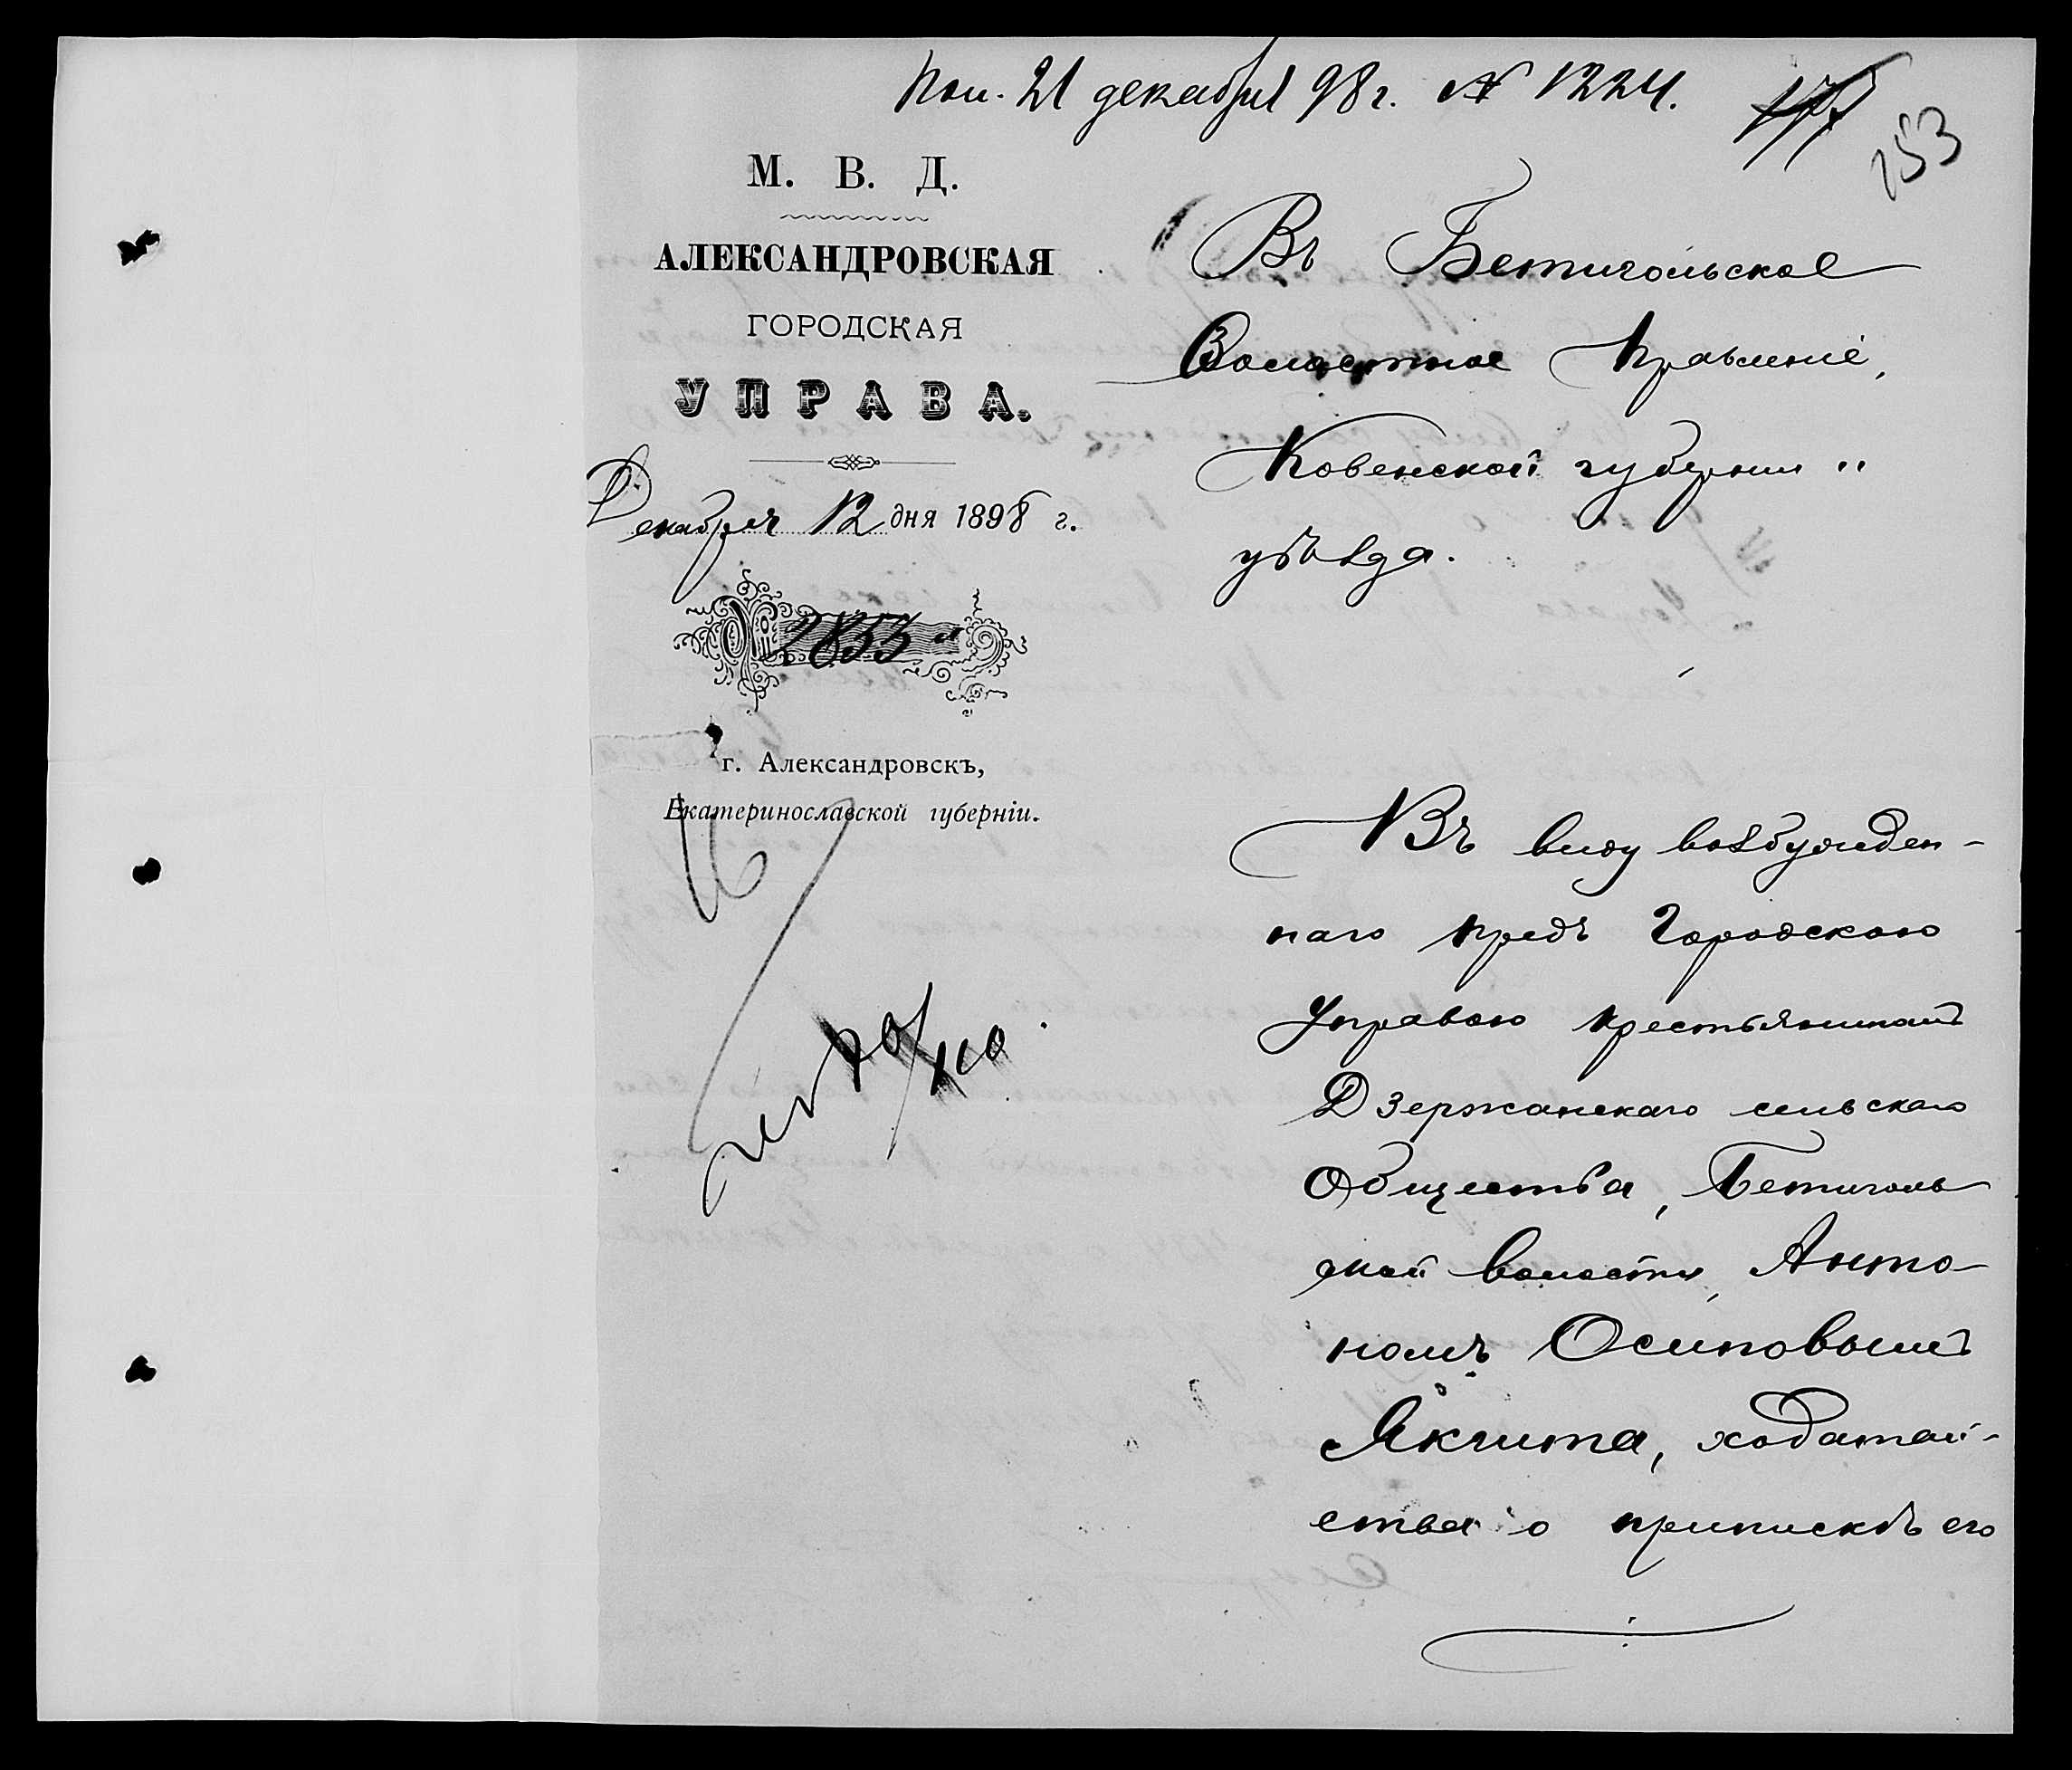 Пол. 21 декабря 98 г. № 1224.
153
М. В. Д.
АЛЕКСАНДРОВСКАЯ
ГОРОДСКАЯ
УПРАВА.
Декабря 12 дня 1898 г.
№ 2853
г. Александровскъ,
Екатеринославской губерніи.
Въ Бетигольское
Волостное Правленіе,
Ковенской губерніи "
уѣзда.
Въ виду возбужден-
наго предъ Городскою
Управою крестьяниномъ
Дзержанскаго сельскаго
Общества, Бетиголь
ской волости, Анто-
номъ Осиповымъ
Якчита, ходатай-
ства о припискѣ его